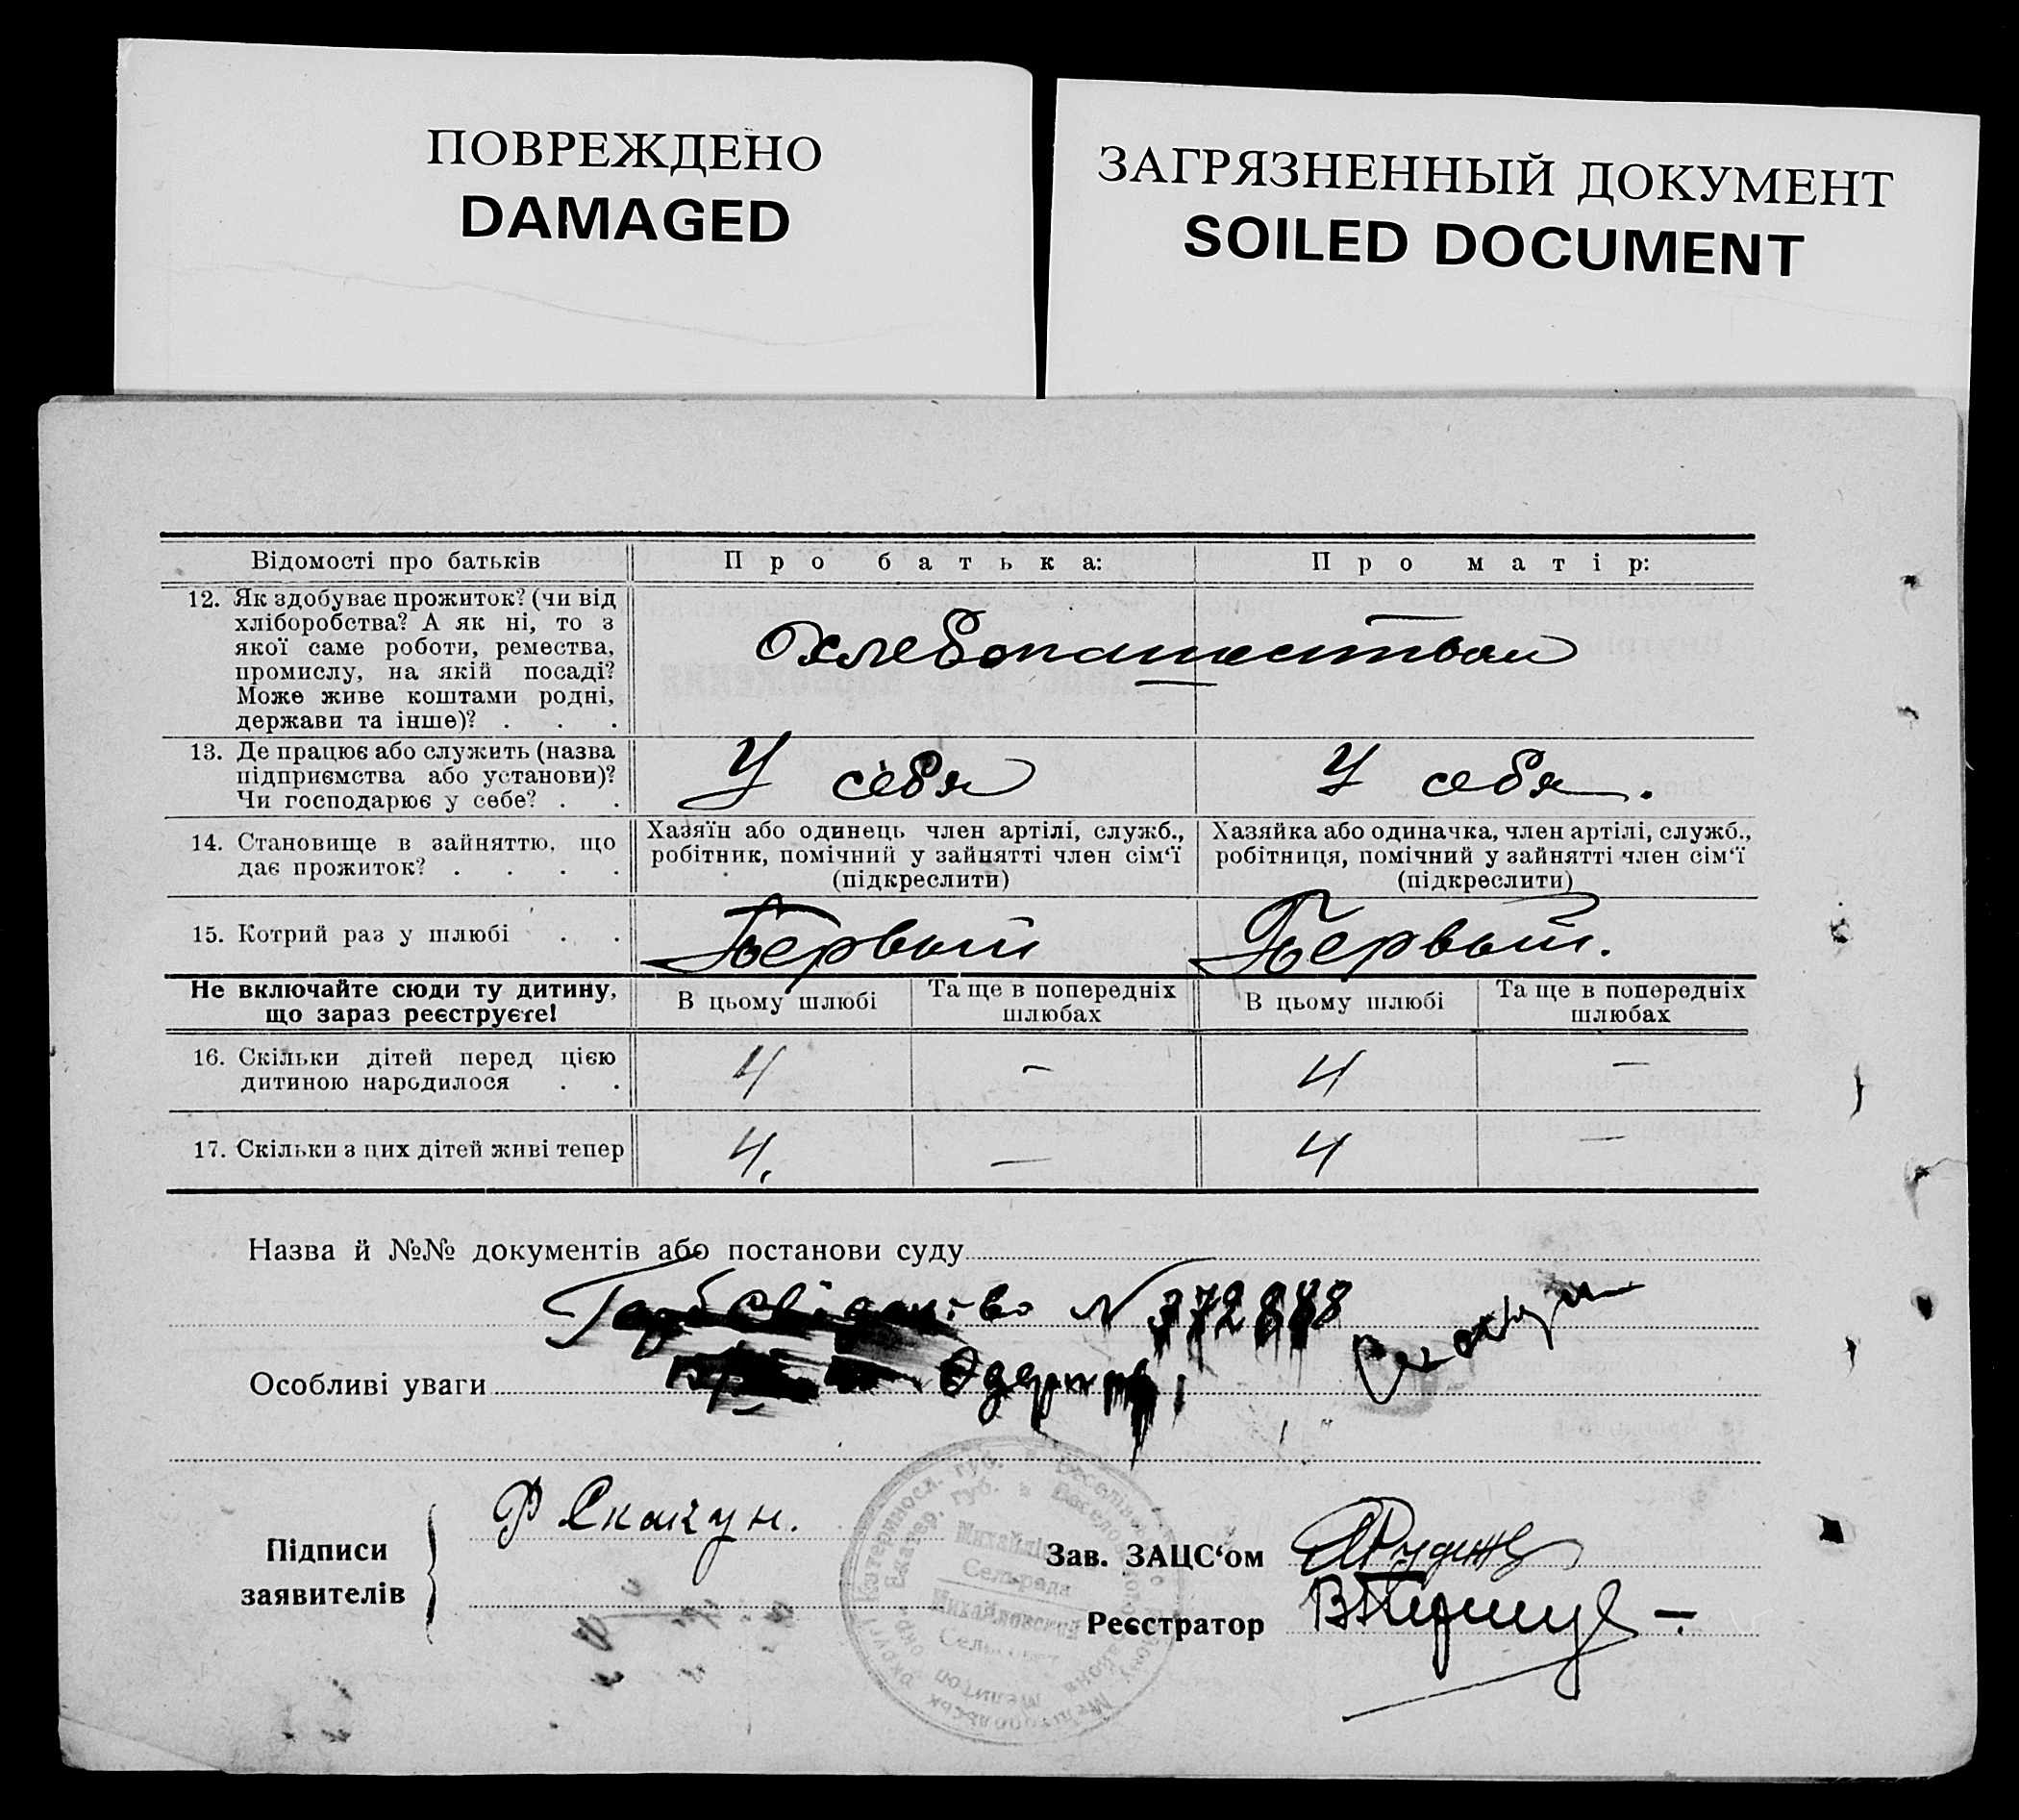 ПОВРЕЖДЕНО
DAMAGED
ЗАГРЯЗНЕННЫЙ ДОКУМЕНТ
SOILED DOCUMENT
Відомості про батьків
Про батька:
Про матір:
12. Як здобуває прожиток? (чи від
хліборобства? А як ні, то з
якої саме роботи, ремества,
промислу, на якій посаді?
Може живе коштами родні,
держави та інше)? . . .
Охлебопашеством
13. Де працює або служить (назва
підприємства або установи)?
Чи господарює у себе? . .
У себя
У себя.
14. Становище в зайняттю, що
дає прожиток? . . . .
Хазяїн або одинець член артілі, служб.,
робітник, помічний у зайнятті член сім‘ї
(підкреслити)
Хазяйка або одиначка, член артілі, служб.,
робітниця, помічний у зайнятті член сім‘ї
(підкреслити)
15. Котрий раз у шлюбі . .
Первый
Первый.
Не включайте сюди ту дитину,
що зараз реєструєте!
В цьому шлюбі
Та ще в попередніх
шлюбах
В цьому шлюбі
Та ще в попередніх
шлюбах
16. Скільки дітей перед цією
дитиною народилося . .
4 – 4 –
17. Скільки з цих дітей живі тепер
4. — 4 —
Назва й №№ документів або постанови суду
N 372888
Скакун
Особливі уваги
Підписи
заявителів
Р Скакун.
Михайлівська
Сельрада
Михайловский
Зав. ЗАЦС‘ом
Реєстратор